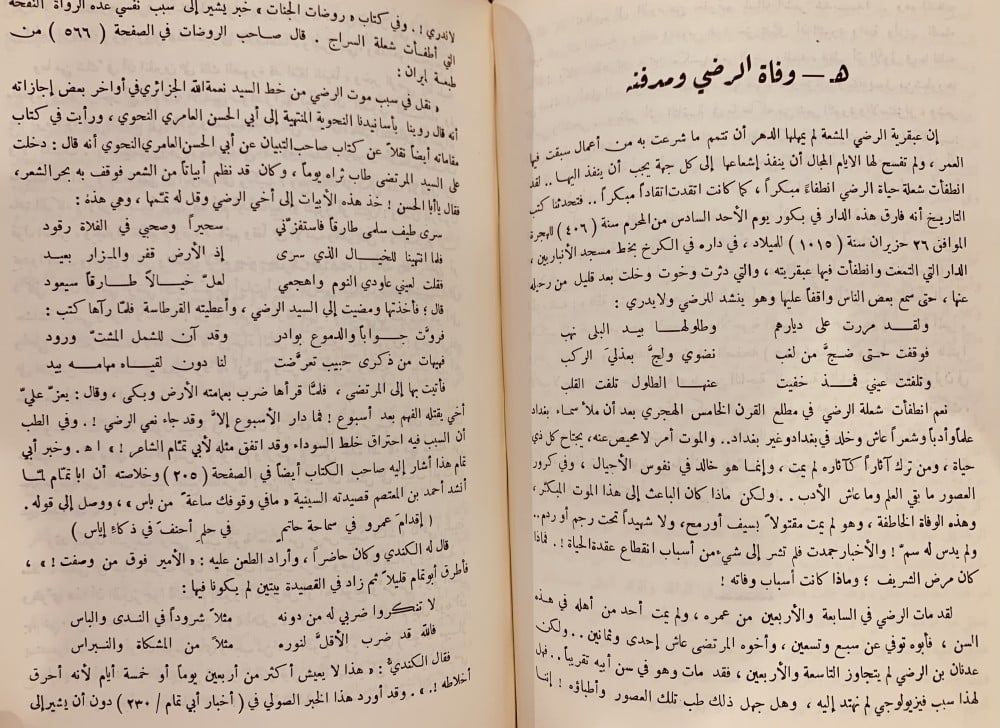 هـ — وفاة الرضي ومدفنه
إن عبقرية الرضي المشعة لم يمهلها الدهر أن تتمم ما شرعت به من أعمال سبقت فيها
العمر ، ولم تفسح لها الايام المجال أن ينفذ إشعاعها إلى كل جهة يجب أن ينفذ اليها .. لقد
انطفأت شعلة حياة الرضي انطفاءً مبكراً ، كما كانت اتقدت اتقاداً مبكراً .. فتحدثنا كتب
التاريخ أنه فارق هذه الدار في بكور يوم الأحد السادس من المحرم سنة ( ٤٠٦ ) للهجرة
الموافق ٢٦ حزيران سنة ( ١٠١٥ ) للميلاد ، في داره في الكرخ بخط مسجد الأنباريين ،
الدار التي التمعت وانطفأت فيها عبقريته ، والتي دثرت وخوت وخلت بعد قليل من رحيله
عنها ، حتى سمع بعض الناس واقفاً عليها وهو ينشد للرضي ولايدري :
ولقـد مررت على ديارهم وطلولهـا بيـد البلى نهب
فوقفت حتـى ضجَّ من لغب نضوي ولجَّ بعذلي الركب
وتلفتت عيني فمـذ خفيت عنهـا الطلول تلفت القلب
نعم انطفأت شعلة الرضي في مطلع القرن الخامس الهجري بعد أن ملأ سماء بغداد
علماً وأدباً وشعراً عاش وخلد في بغداد وغير بغداد.. والموت أمر لامحيص عنه، يجتاح كل ذي
حياة ، ومن ترك آثاراً كآثاره لم يمت ، وإنمـا هو خالد في نفوس الأجيال ، وفي كرور
العصور ما بقي العلم وما عاش الأدب .. ولكن ماذا كان الباعث إلى هذا الموت المبكر،
وهذه الوفاة الخاطفة ، وهو لم يمت مقتولاً بسيف أورمح، ولا شهيداً تحت رجم أو ردم..
ولم يدس له سمّ ! والأخبار جمدت فلم تشر إلى شيء من أسباب انقطاع عقدة الحياة ! . فماذا
كان مرض الشريف ؛ وماذا كانت أسباب وفاته !
لقد مات الرضي في السابعة والأربعين من عمره ، ولم يمت أحد من أهله في هذه
السن ، فأبوه توفي عن سبع وتسعين ، وأخوه المرتضى عاش إحدى وثمانين .. ولكن
عدنان بن الرضي لم يتجاوز التاسعة والأربعين ، فقد مات وهو في سن أبيه تقريباً .. فهل
لهذا سبب فيزيولوجي لم نهتد إليه ، وهل جهل ذلك طب تلك العصور وأطباؤه ! إننا
لاندري ! . وفي كتاب « روضات الجنات » خبر يشير إلى سبب نفسي عده الرواة النفحة
التي أطفأت شعلة السراج . قال صاحب الروضات في الصفحة ( ٥٦٦ ) من
طبعة ايران :
« نقل في سبب موت الرضي من خط السيد نعمة الله الجزائري في أواخر بعض إجازاته
أنه قال روينا بأسانيدنا النحوية المنتهية إلى أبي الحسن العامري النحوي ، ورأيت في كتاب
مقاماته أيضاً نقلاً عن كتاب صاحب التبيان عن أبي الحسن العامري النحوي أنه قال : دخلت
على السيد المرتضى طاب ثراه يوماً ، وكان قد نظم أبياتاً من الشعر فوقف به بحر الشعر،
فقال ياأبا الحسن ! خذ هذه الأبيات إلى أخي الرضي وقل له تممها ، وهي هذه :
سرى طيف سلمى طارقاً فاستفزّني سحيراً وصحبي في الفلاة رقود
فلما انتبهنا للخيـال الذي سرى إذ الأرض قفر والمـزار بعيـد
فقلت لعيني عاودي النوم واهجعي لعلّ خيـالاً طـارقاً سيعود
قال ؛ فأخذتها ومضيت إلى السيد الرضي ، وأعطيته القرطاسة فلمّا رآها كتب :
فردّت جـواباً والدموع بوادر وقد آن للشمل المشتّ ورود
فهيهات من ذكرى حبيب تعرّضت لنا دون لقيـاه مهامـه بيد
فأتيت بها إلى المرتضى ، فلمّا قرأها ضرب بعمامته الأرض وبكى ، وقال : يعزّ عليّ
أخي يقتله الفهم بعد أسبوع ! فما دار الأسبوع إلاّ وقد جاء نعي الرضي ! . وفي الطب
أن السبب فيه احتراق خلط السوداء وقد اتفق مثله لأبي تمّام الشاعر ! » اهـ . وخبر أبي
تمام هذا أشار إليه صاحب الكتاب أيضاً في الصفحة ( ٢٠٥ ) وخلاصته أن ابا تمّام لمّا
أنشد أحمد بن المعتصم قصيدته السينية « مافي وقوفك ساعةً من باس » ، ووصل إلى قوله .
( إقدام عمرو في سماحة حاتم في حلم أحنف في ذكاء إياس )
قال له الكندي وكان حاضراً ، وأراد الطعن عليه : « الأمير فوق من وصفت ! » ،
فأطرق أبوتمام قليلاً ثم زاد في القصيدة بيتين لم يكونا فيها :
لا تنكروا ضربي له من دونه مثلاً شروداً في النـدى والباس
فالله قد ضرب الأقلَّ لنوره مثلاً من المشكاة والنبـراس
فقال الكنديّ : « هذا لا يعيش أكثر من أربعين يوماً أو خمسة أيام لأنه أحرق
أخلاطه ! . » . وقد أورد هذا الخبر الصولي في ( أخبار أبي تمام / ٢٣٠ ) دون أن يشير إلى